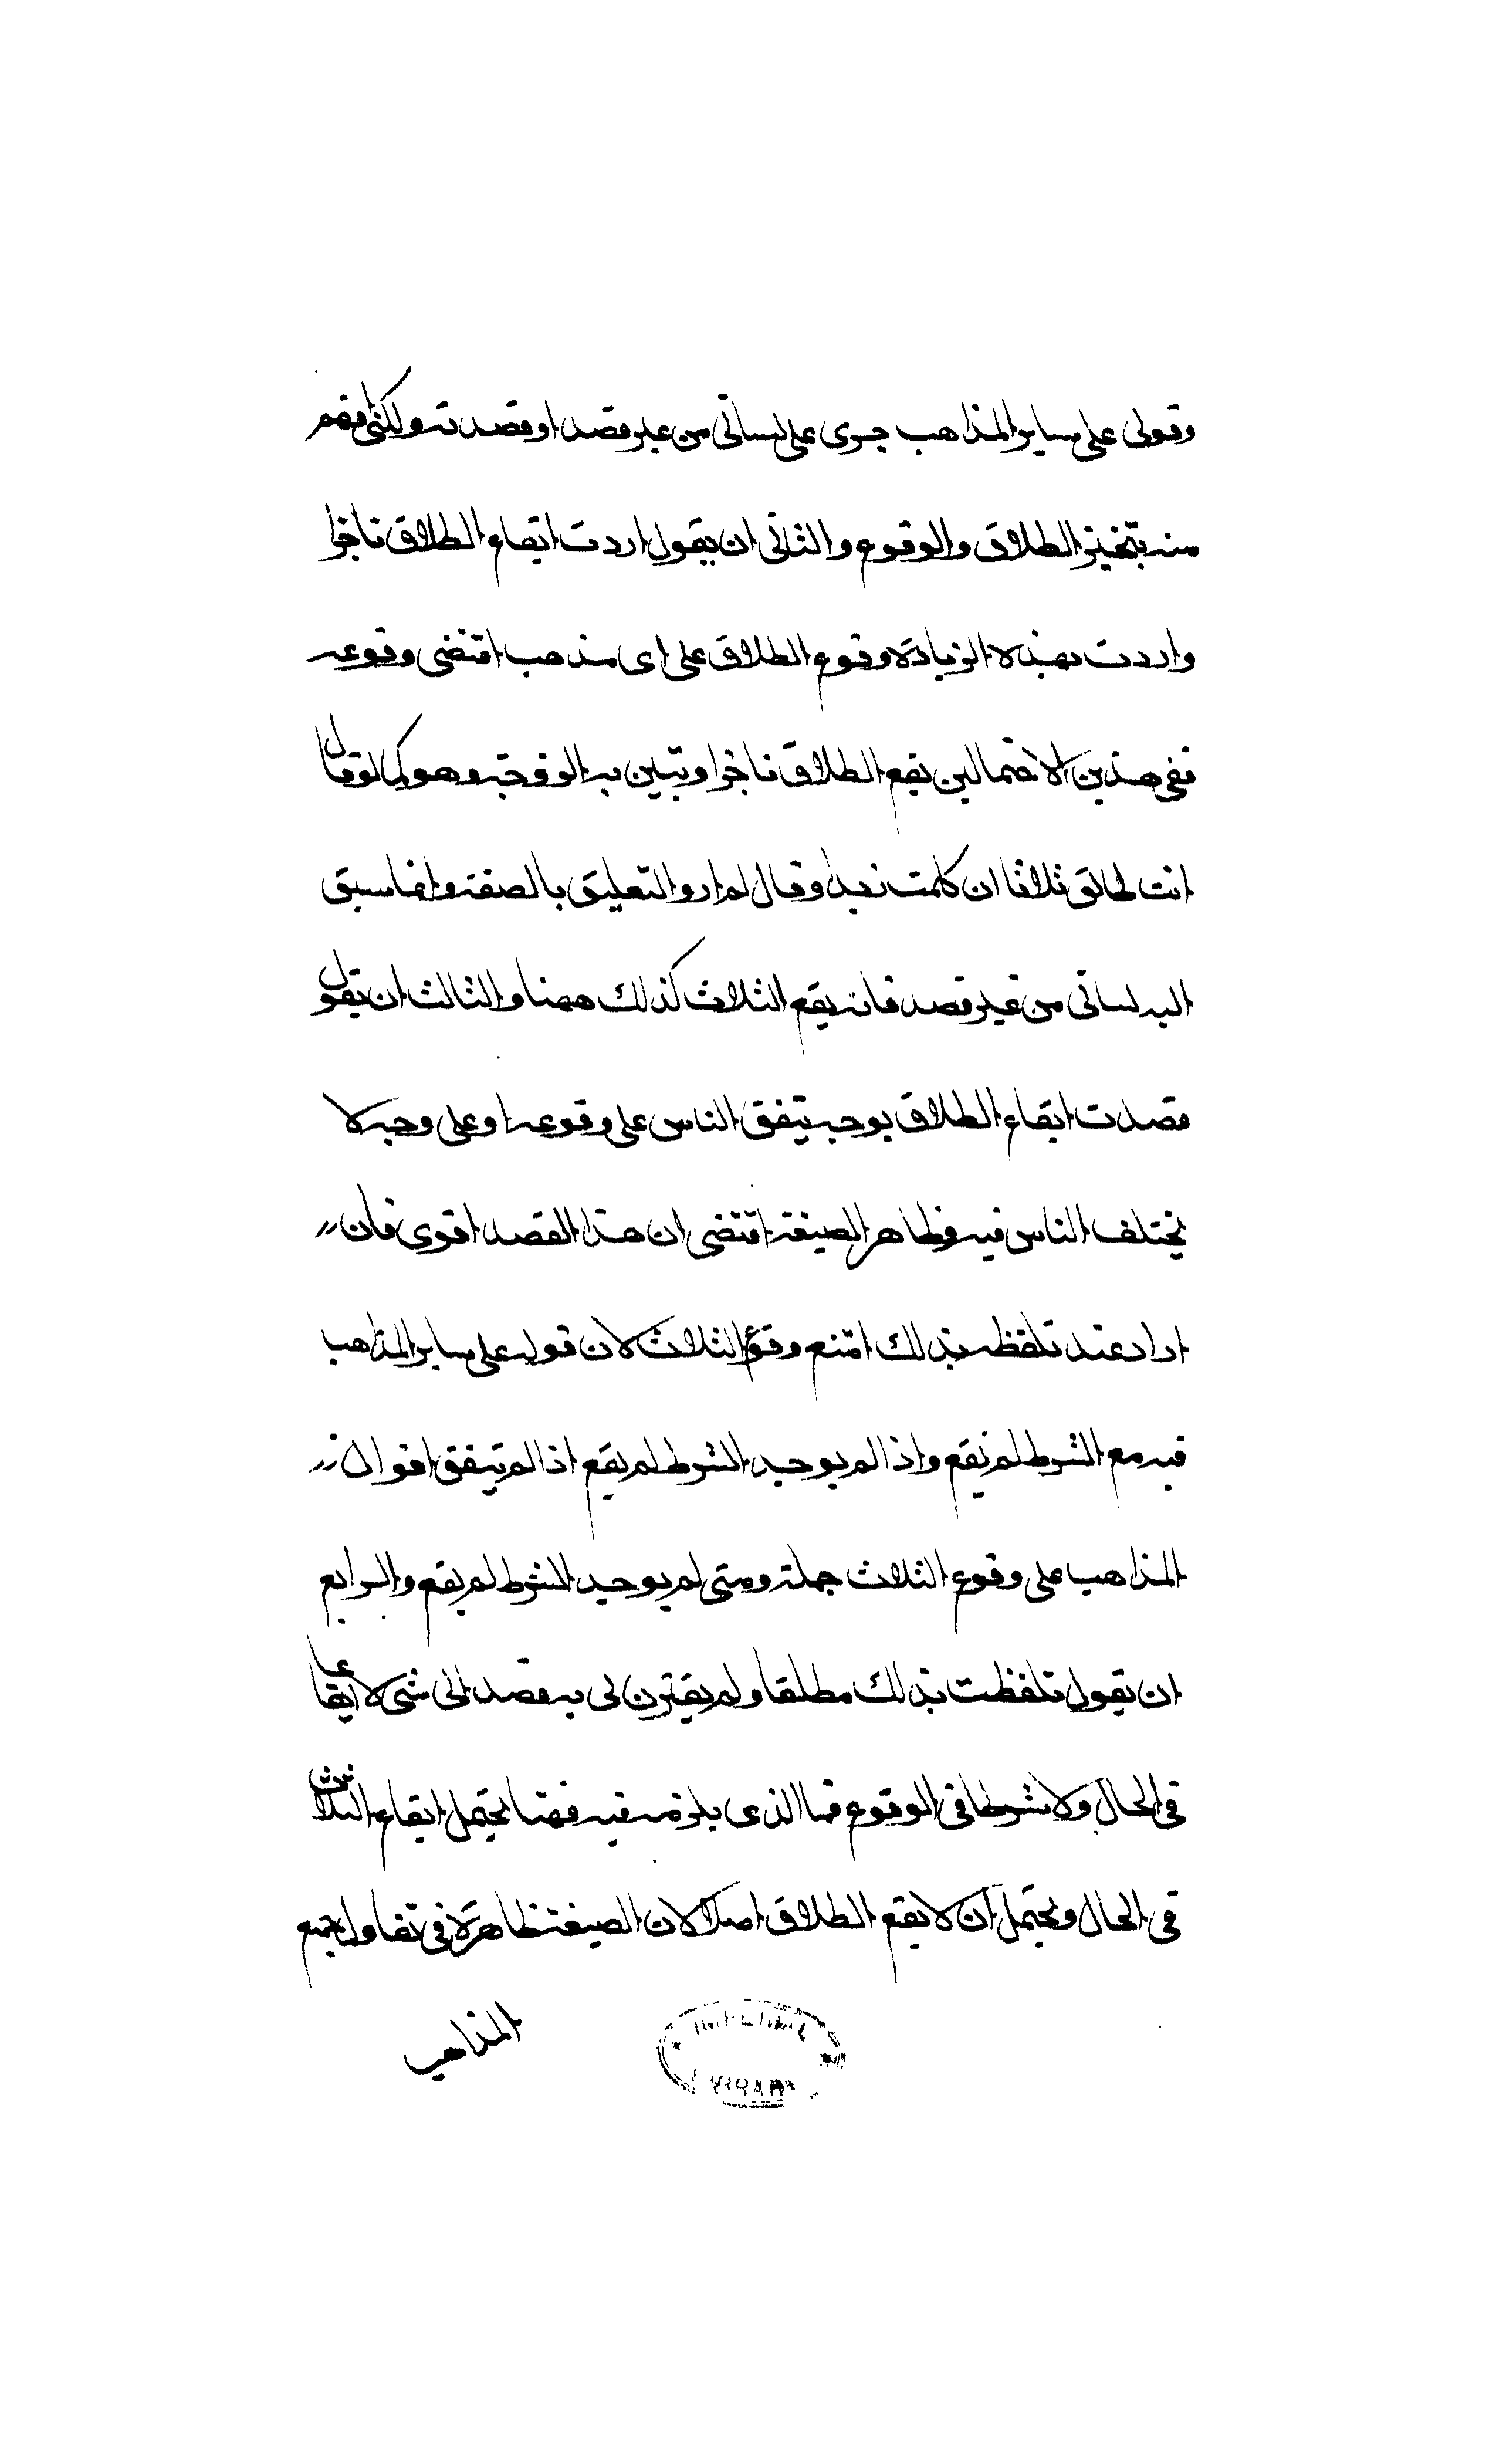 وقولى على ساير المذاهب جرى على لسانى من غير قصد او قصدته ولكننى افهم
منه بتنجيز الطلاق والوقوع والثانى ان يقول اردت ايقاع الطلاق ناجزا
واردت بهذه الزيادة وقوع الطلاق على اى مذهب اقتضى وقوعه
ففى هذين الاحتمالين يقع الطلاق ناجزا وتبين به الزوجة وهو كما لو قال
انت طالق ثلاثا ان كلمت زيدا وقال لم ارد التعليق بالصفة وانما سبق
اليه لسانى من غير قصد فانه يقع الثلاث كذلك ههنا والثالث ان يقول
قصدت ايقاع الطلاق بوجه يتفق الناس على وقوعه او على وجه لا
يختلف الناس فيه وظاهر الصيغة اقتضى ان هذا القصد اقوى فان
اراد عند تلفظه بذلك امتنع وقوع الثلاث لان قوله على ساير المذاهب
فيه مع الشرط لم يقع واذا لم يوجد الشرط لم يقع اذا لم يتفق اقوال
المذاهب على وقوع الثلاث جملة ومتى لم يوجد الشرط لم يقع والرابع
ان يقول تلفظت بذلك مطلقا ولم يقترن لى به قصد الى شى لا ايقاعا
فى الحال ولا شرطا فى الوقوع فما الذى يلزمه فيه فهنا يحتمل ايقاع الثلاث
فى الحال ويحتمل ان لا يقع الطلاق اصلا لان الصيغة ظاهرة فى تناول جميع
المذاهب